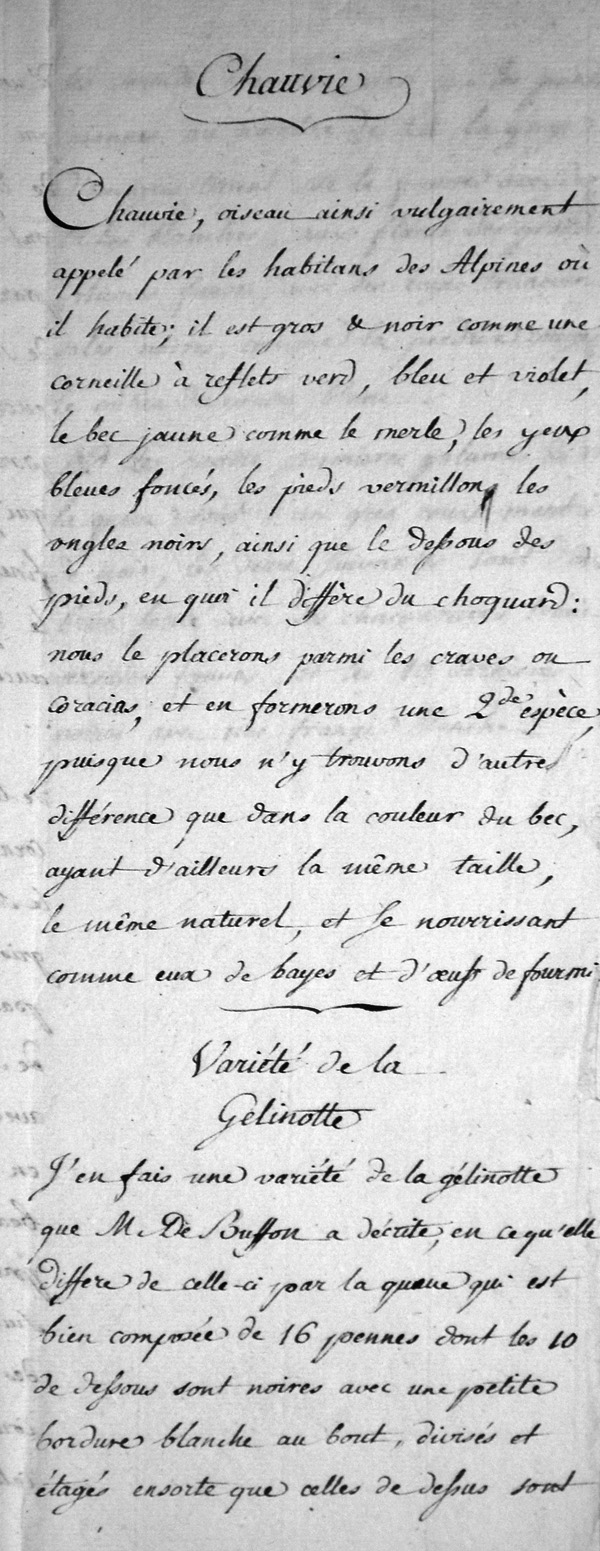 Chauvie
Chauvie, oiseau ainsi vulgairement
appelé par les habitans des Alpines où
il habite; il est gros & noir comme une
corneille à reflets verd, bleu et violet,
le bec jaune comme le merle, les yeux
bleues foncés, les pieds vermillon, les
ongles noirs, ainsi que le dessous des
pieds, en quoi il diffère du choquard:
nous le placerons parmi les craves ou
coracias, et en formerons une 2de espèce,
puisque nous n'y trouvons d'autre
différence que dans la couleur du bec,
ayant d'ailleurs la même taille,
le même naturel, et se nourrissant
comme eux de bayes et d'œufs de fourmi.
Variété de la
Gélinotte
J'en fais une variété de la gélinotte
que M. De Buffon a décrite, en ce qu'elle
differe de celle-ci par la queue qui est
bien composée de 16 pennes dont les 10
de dessous sont noires avec une petite
bordure blanche au bout, divisés et
étagés ensorte que celles de dessus sont